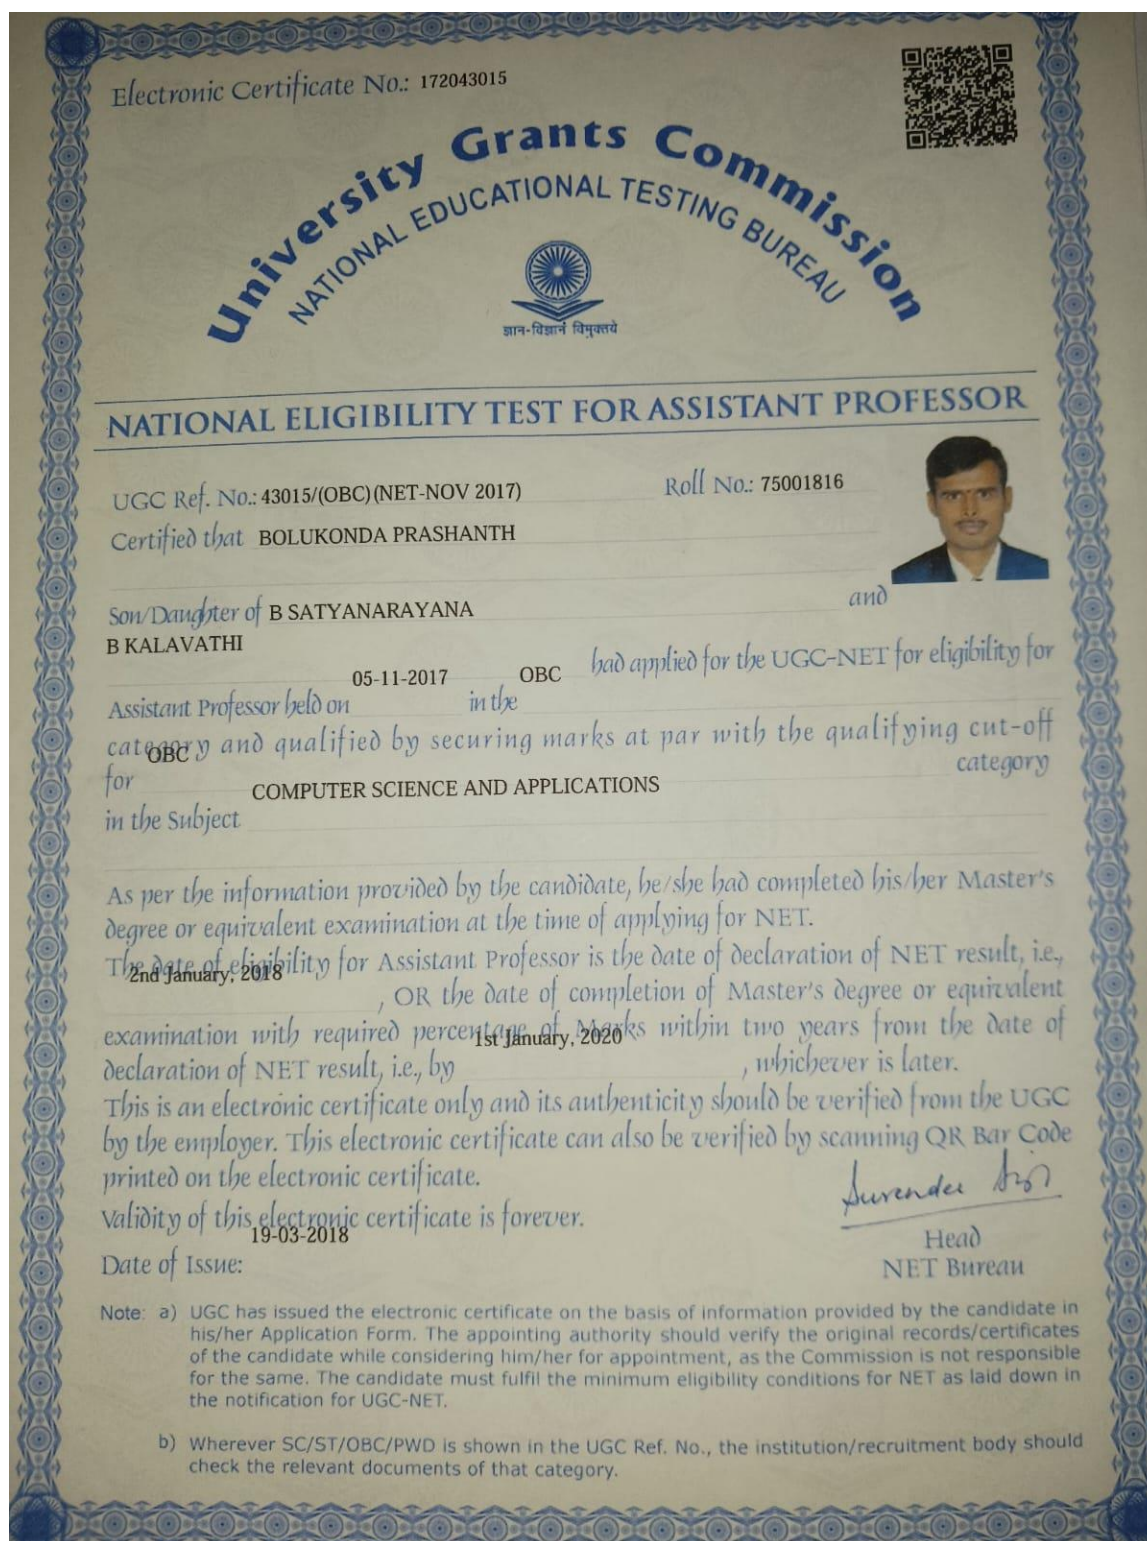 Electronic Certificate No.: 172043015
University Grants Commission
NATIONAL EDUCATIONAL TESTING BUREAU
ज्ञान-विज्ञानं विमुक्तये
NATIONAL ELIGIBILITY TEST FOR ASSISTANT PROFESSOR
UGC Ref. No.: 43015/(OBC)(NET-NOV 2017) Roll No.: 75001816
Certified that BOLUKONDA PRASHANTH
Son/Daughter of B SATYANARAYANA and
B KALAVATHI
05-11-2017 OBC had applied for the UGC-NET for eligibility for
Assistant Professor held on in the
category and qualified by securing marks at par with the qualifying cut-off
OBC
for category
COMPUTER SCIENCE AND APPLICATIONS
in the Subject
As per the information provided by the candidate, he/she had completed his/her Master's
degree or equivalent examination at the time of applying for NET.
The date of eligibility for Assistant Professor is the date of declaration of NET result, i.e.,
2nd January, 2018
, OR the date of completion of Master's degree or equivalent
examination with required percentage of Marks within two years from the date of
1st January, 2020
declaration of NET result, i.e., by , whichever is later.
This is an electronic certificate only and its authenticity should be verified from the UGC
by the employer. This electronic certificate can also be verified by scanning QR Bar Code
printed on the electronic certificate.
Validity of this electronic certificate is forever.
19-03-2018
Date of Issue:
Surender
Head
NET Bureau
Note: a) UGC has issued the electronic certificate on the basis of information provided by the candidate in
his/her Application Form. The appointing authority should verify the original records/certificates
of the candidate while considering him/her for appointment, as the Commission is not responsible
for the same. The candidate must fulfil the minimum eligibility conditions for NET as laid down in
the notification for UGC-NET.
b) Wherever SC/ST/OBC/PWD is shown in the UGC Ref. No., the institution/recruitment body should
check the relevant documents of that category.